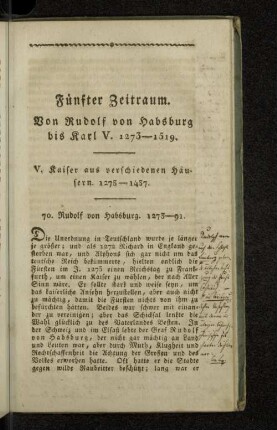 Fünfter Zeitraum.
Von Rudolf von Habsburg
bis Karl V. 1273—1519.
V. Kaiser aus verschiedenen Häu-
sern. 1273—1437.
70. Rudolf von Habsburg. 1273—91.
Die Unordnung in Teutschland wurde je länger
je größer; und als 1272 Richard in England ge-
storben war, und Alphons sich gar nicht um das
teutsche Reich bekümmerte, hielten endlich die
Fürsten im J. 1273 einen Reichstag zu Frank-
furth, um einen Kaiser zu wählen, der nach Aller
Sinn wäre. Er sollte stark und weise seyn, um
das kaiserliche Ansehn herzustellen, aber auch nicht
zu mächtig, damit die Fürsten nichts von ihm zu
befürchten hätten. Beides war schwer mit einan-
der zu vereinigen; aber das Schicksal lenkte die
Wahl glücklich zu des Vaterlandes Besten. In
der Schweiz und im Elsaß lebte der Graf Rudolf
von Habsburg, der nicht gar mächtig an Land
und Leuten war, aber durch Muth, Klugheit und
Rechtschaffenheit die Achtung der Großen und des
Volkes erworben hatte. Oft hatte er die Städte
gegen wilde Raubritter beschützt; lang war er